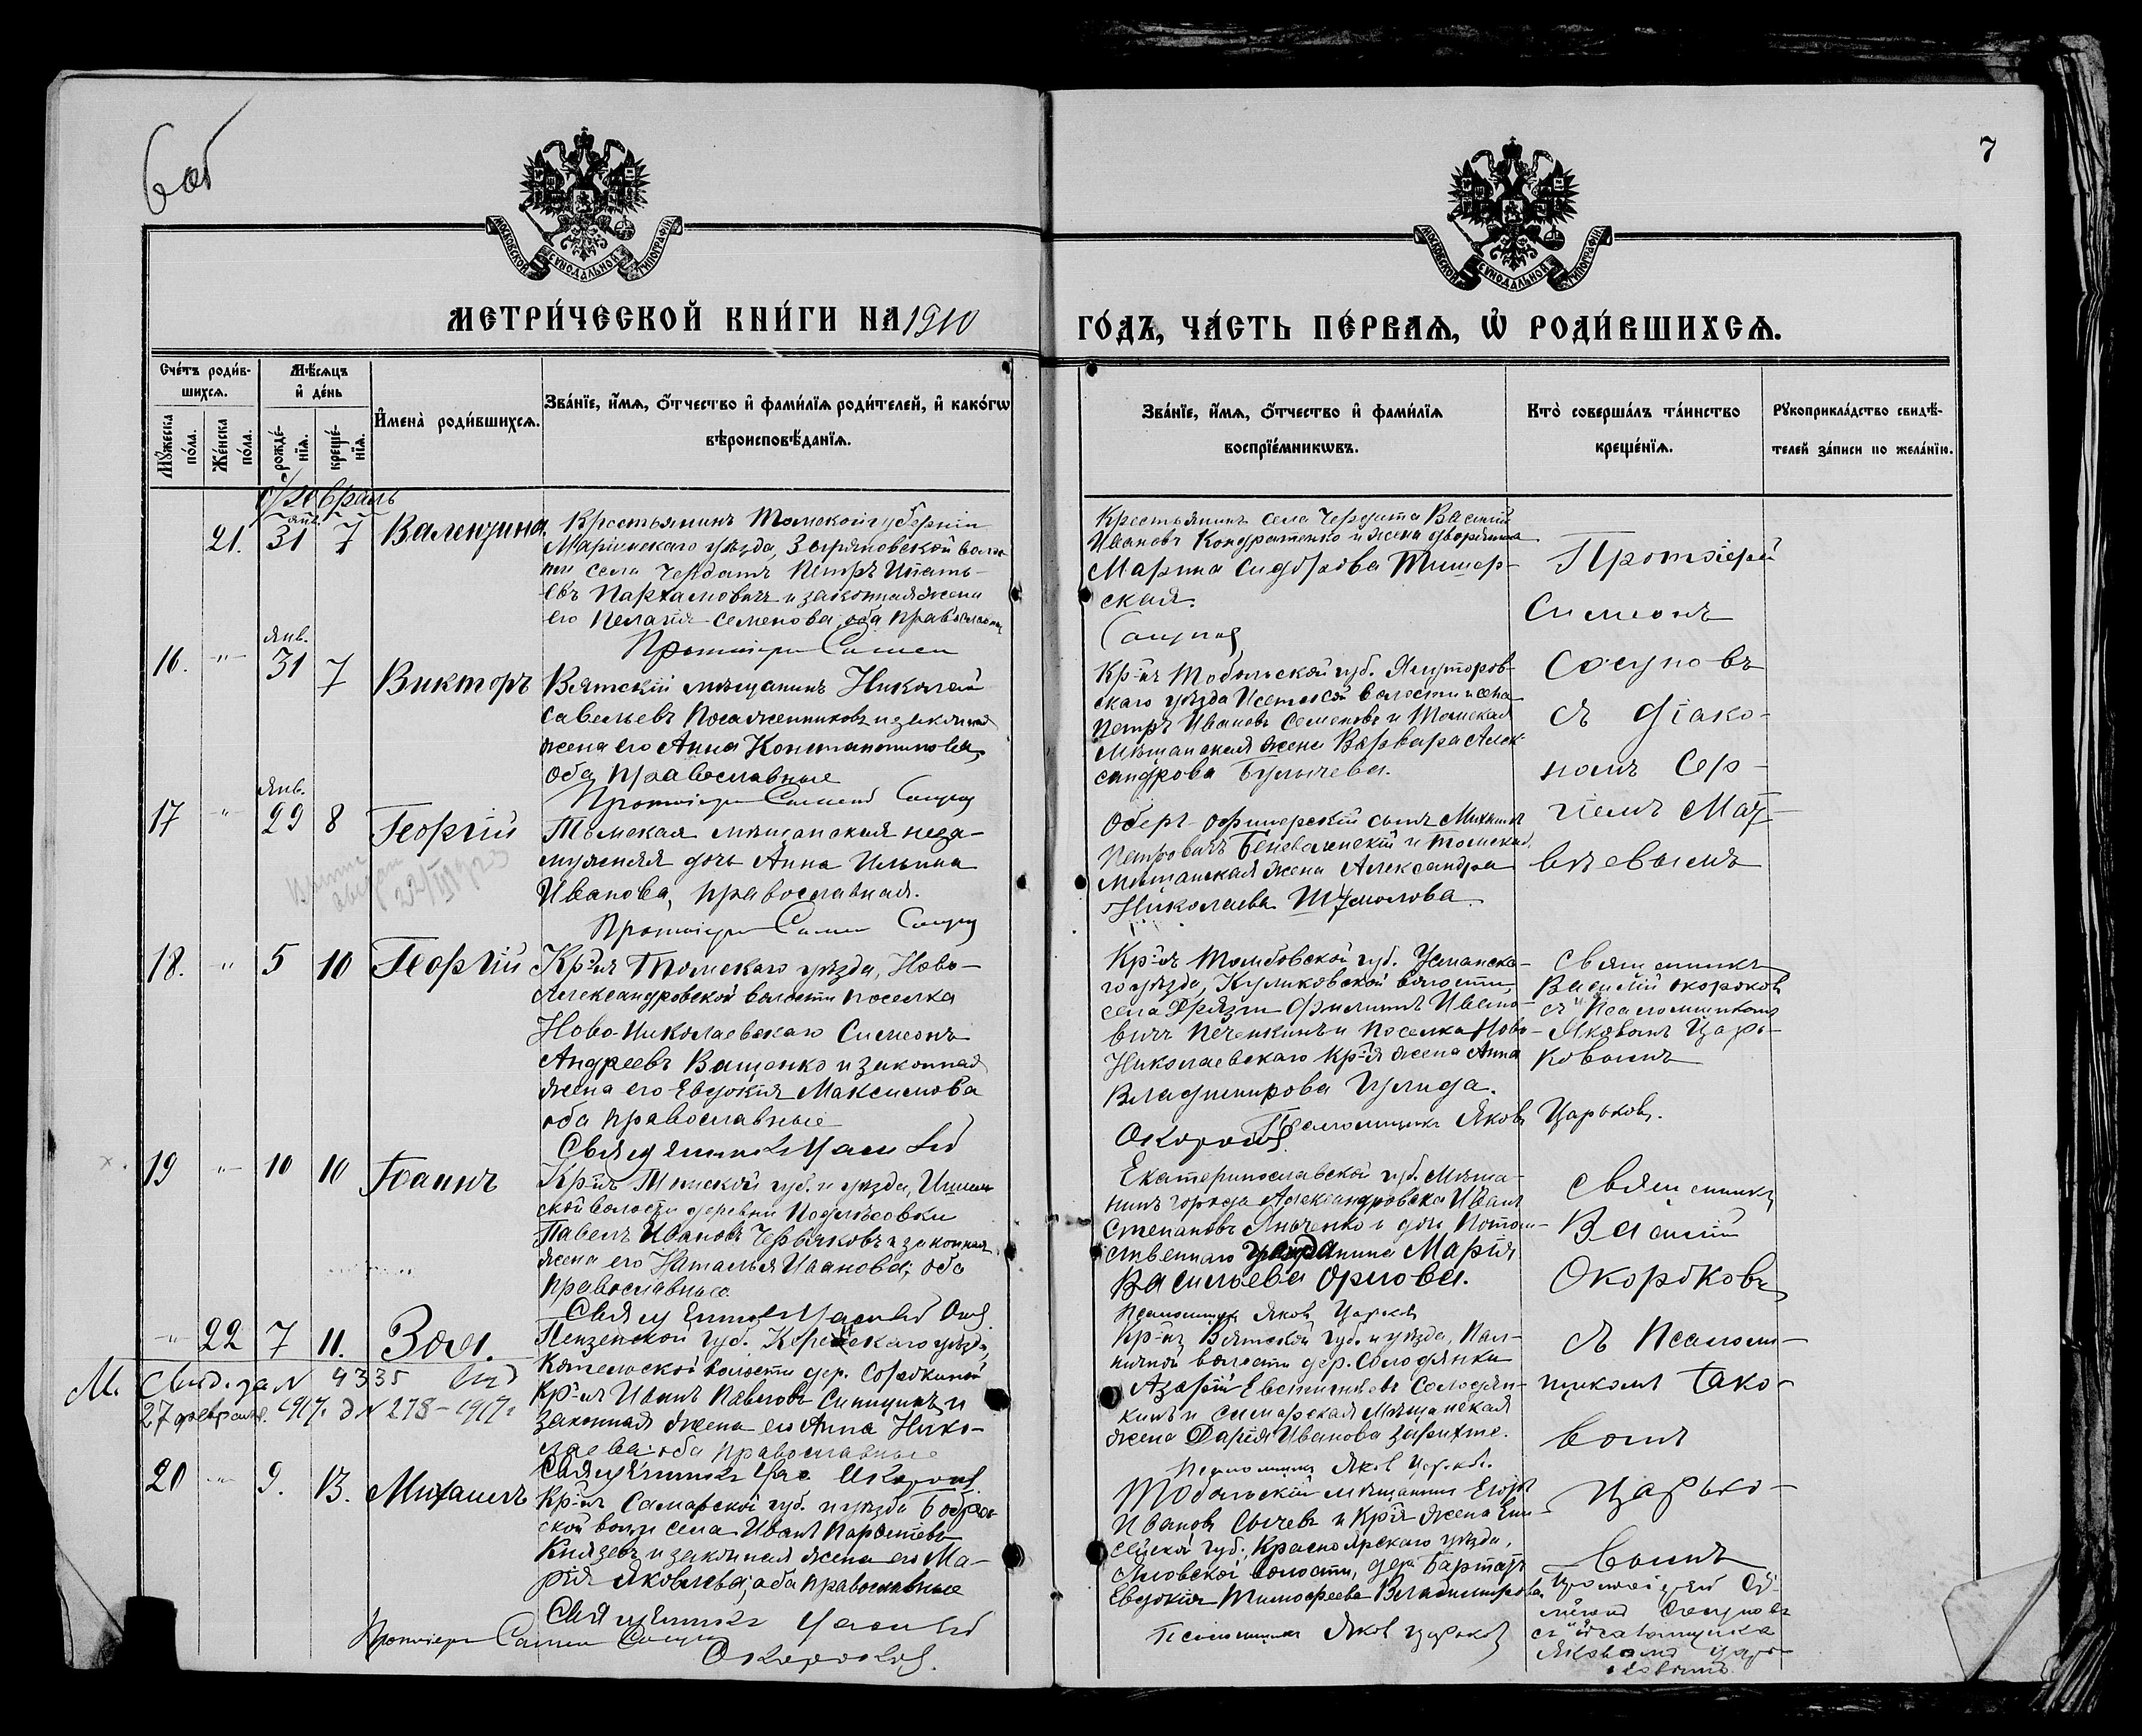 6об
7
МОСКОВСКОЙ СУНОДАЛЬНОЙ ТИПОГРАФІИ
МОСКОВСКОЙ СУНОДАЛЬНОЙ ТИПОГРАФІИ
МЕТРИ́ЧЕСКОЙ КНИ́ГИ НА 1910
ГО́ДЪ, ЧА́СТЬ ПЕ́РВАѦ, Ѡ҆ РОДИ́ВШИХСѦ.
Сче́тъ роди́в-
шихсѧ.
Мѣ́сѧцъ
и҆ де́нь
И҆мена̀ роди́вшихсѧ.
Зва́нїе, и҆́мѧ, ѻ҆́тчество и҆ фамі́лїѧ роди́телей, и҆ како́гѡ
вѣроисповѣ́данїѧ.
Мꙋ́жеска по́ла.
Же́нска по́ла.
рожде́-нїѧ.
креще́-нїѧ.
Зва́нїе, и҆́мѧ, ѻ҆́тчество и҆ фамі́лїѧ
воспрїе́мникѡвъ.
Кто̀ соверша́лъ та́инство
креще́нїѧ.
Рꙋкоприкла́дство свидѣ́-
телей за́писи по жела́нїю.
Февраль
янв.
21. 31 7 Валентина.
Крестьянинъ Томской губернiи
Марiинскаго уѣзда, Зырянской воло-
сти села Чердатъ Петръ Ипать-
евъ Пархамовичъ и законная жена
его Пелагiя Семенова, оба православны
Протоiерей Симеон
Крестьянинъ села Чердата Василiй
Ивановъ Кондратенко и жена дворянина
Марина Сидорова Тишер-
ская.
Сосунов
Протоiерей
Симеонъ
Сосуновъ
съ дiако-
номъ Сер-
гiемъ Мат-
вѣевымъ
янв.
16. " 31 7 Викторъ
Вятскiй мѣщанинъ Николай
Савельевъ Посаженниковъ и законная
жена его Анна Константинова,
оба православные
Протоiерей Симеон Сосунов
Кр-нъ Тобольской губ. Ялуторов-
скаго уѣзда Исетской волости и села
Петръ Ивановъ Семеновъ и Томская
мѣщанская жена Варвара Алек-
сандрова Булычева.
янв.
17 " 29 8 Георгiй
Томская мѣщанская неза-
мужняя дочь Анна Ильина
Иванова, православная.
Протоiерей Симеон Сосунов
Оберъ-офицерскiй сынъ Михаилъ
Петровичъ Беневоленскiй и Томская
мѣщанская жена Александра
Николаева Шумолова.
18. " 5 10 Георгiй
Кр-нъ Томскаго уѣзда, Ново-
Александровской волости поселка
Ново-Николаевскаго Симеонъ
Андреевъ Ващенко и законная
жена его Евдокiя Максимова
оба православные
Священникъ Василiй
Кр-нъ Тамбовской губ. Усманска-
го уѣзда, Куликовской волости,
села Грязи Филиппъ Ивано-
вичъ Печенкинъ и поселка Ново-
Николаевскаго кр-я жена Анна
Владимирова Гулида.
Окороков Псаломщикъ Яковъ Царьков.
Священникъ
Василiй Окороков
съ псаломщикомъ
Яковомъ Царь-
ковымъ
19 " 10 10 Iоаннъ
Кр-нъ Томской губ. и уѣзда, Ишим-
ской волости деревни Подлѣсовки
Павелъ Ивановъ Червяковъ и законная
жена его Наталья Иванова, оба
православные
Священникъ Василiй
Екатеринославской губ. мѣща-
нинъ города Александровска Иванъ
Степановъ Янченко и дочь потом-
ственнаго гражданина Марiя
Васильева Орлова.
Псаломщикъ Яковъ Царьков
Священникъ
Василiй
Окороковъ
съ псалом-
щикомъ Яко-
вомъ
Царько-
вымъ
" 22 7 11. Зоя.
М. Свид. за N 4335
27 февраля 1917. N 278-1917г
Пензенской губ. Керенскаго уѣзда,
Котельской волости дер. Сорокиной
кр-нъ Иванъ Павловъ Синицинъ и
законная жена его Анна Нико-
лаева оба православные
Священникъ Окороков
Кр-нъ Вятской губ. и уѣзда, Пал-
ничной волости дер. Солодянки
Азарiй Евстигнѣевъ Солодян-
кинъ и самарская мѣщанская
жена Дарiя Иванова
Псаломщикъ Яков Царьков.
20 " 9. 13. Михаилъ
Кр-нъ Самарской губ. и уѣзда
ской волости села Иванъ
Князевъ и законная жена его Ма-
рiя Яковлева, оба православные
Священникъ Василiй
Окороков.
Протоiерей Симеон Сосунов
Тобольскiй мѣщанинъ Егоръ
Ивановъ Сычевъ и кр-я жена Ени-
сейской губ., Красноярскаго уѣзда,
волости, дер. Бартатъ
Евдокiя Тимофеева Владимирова
Псаломщикъ Яков Царьков
Протоiерей Си-
меонъ Сосуновъ
съ псаломщикомъ
Яковомъ Царь-
ковымъ